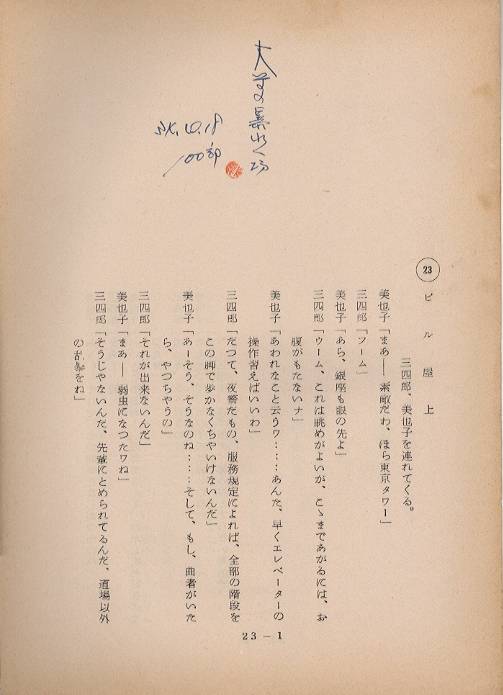 大学の暴れん坊
34.10.18
100部
23
ビル屋上
三四郎、美也子を連れてくる。
美也子「まあ――素敵だわ、ほら東京タワー」
三四郎「フーム」
美也子「あら、銀座も眼の先よ」
三四郎「ウーム、これは眺めがよいが、こゝまであがるには、お
腹がもたないナ」
美也子「あわれなこと云うワ‥‥‥あんた、早くエレベーターの
操作習えばいいわ」
三四郎「だつて、夜警だもの、服務規定によれば、全部の階段を
この脚で歩かなくちやいけないんだ」
美也子「あーそう、そうなのね‥‥‥そして、もし、曲者がいた
ら、やつちやうの」
三四郎「それが出来ないんだ」
美也子「まあ――弱虫になつたワね」
三四郎「そうじやないんだ、先輩にとめられてるんだ、道場以外
の乱暴をね」
23－1